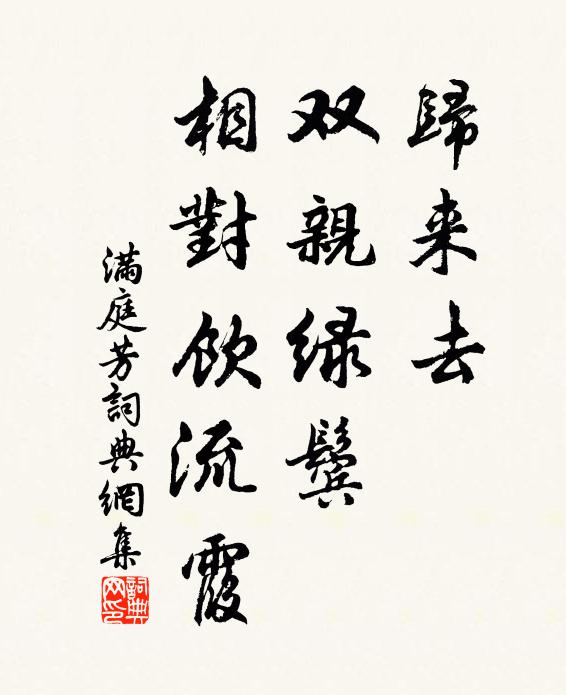 歸来去
双親緑鬓
相對飲流霞
滿庭芳詞典網集
詞典网印